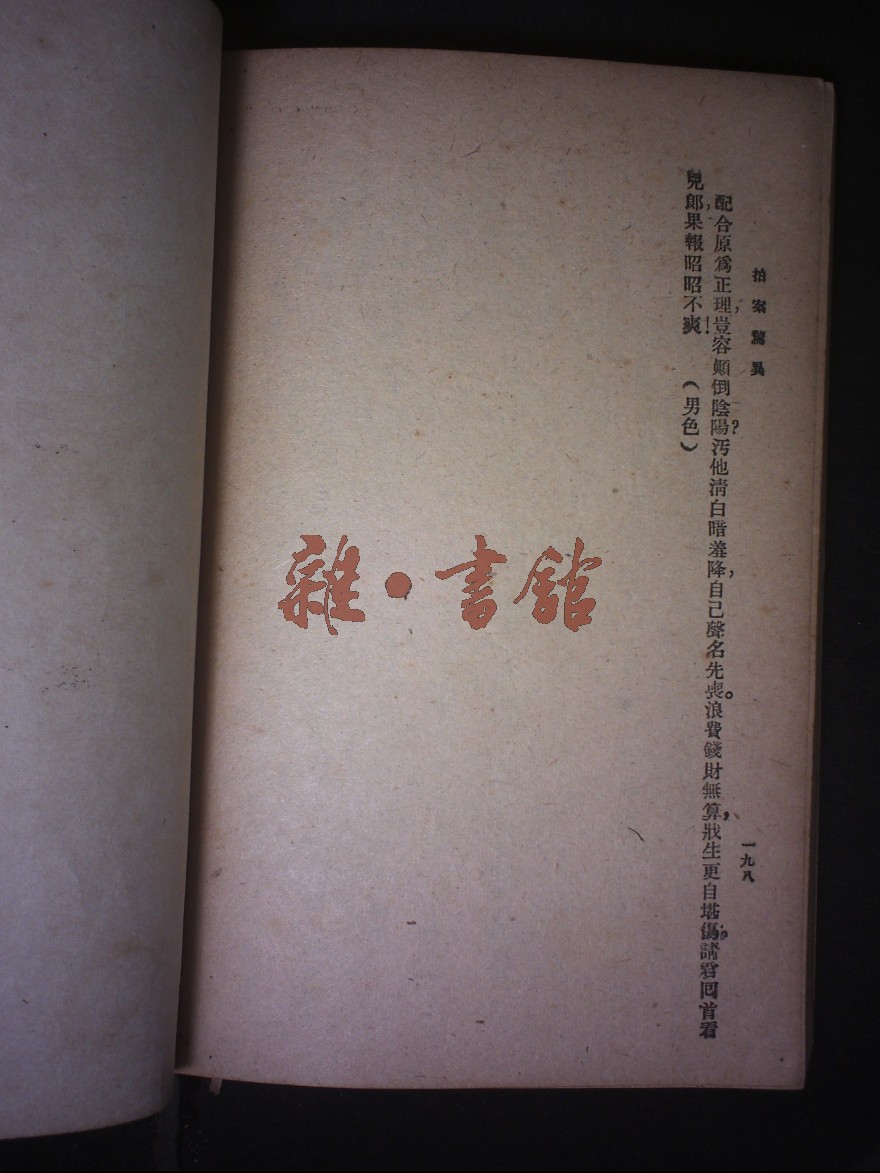 拍案驚異
一九八
配合原爲正理，豈容顚倒陰陽？汚他淸白暗羞降，自己聲名先喪。浪費錢財無算，戕生更自堪傷，請君囘首看
兒郎，果報昭昭不爽！　（男色）
雜•書館